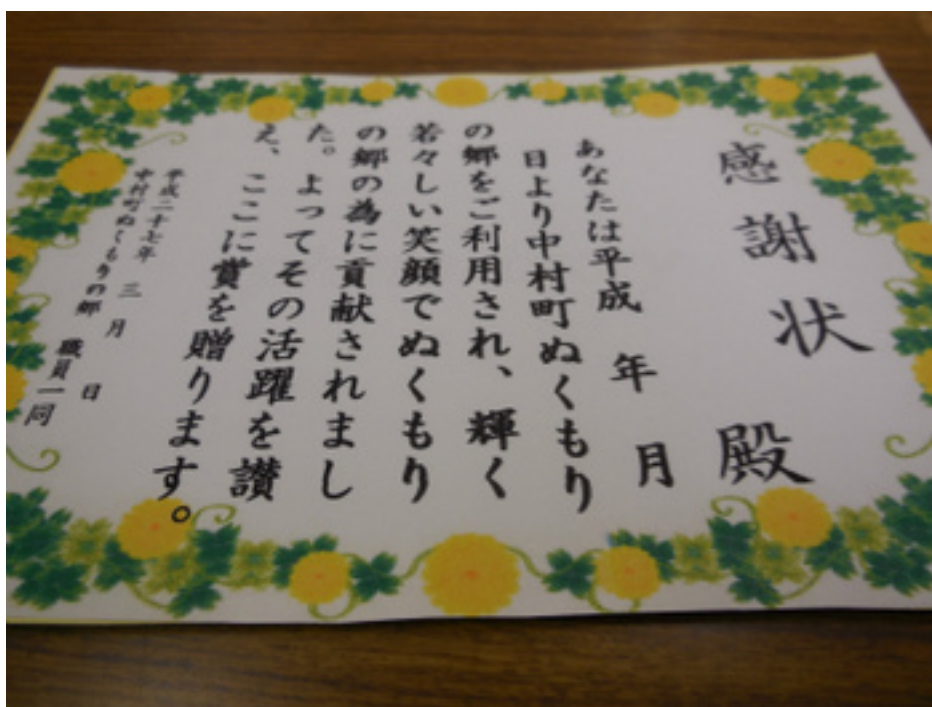 感謝状
殿
あなたは平成　年　月
日より中村町ぬくもり
の郷をご利用され、輝く
若々しい笑顔でぬくもり
の郷の為に貢献されまし
た。よってその活躍を讃
え、ここに賞を贈ります。
平成二十七年　三月　日
中村町ぬくもりの郷　職員一同